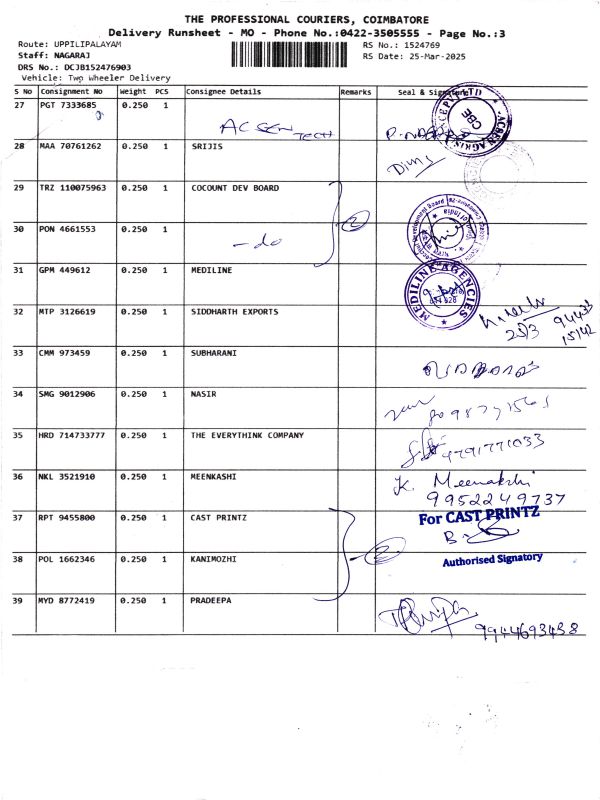 THE PROFESSIONAL COURIERS, COIMBATORE
Delivery Runsheet - MO - Phone No.:0422-3505555 - Page No.:3
Route: UPPILIPALAYAM
RS No.: 1524769
Staff: NAGARAJ
RS Date: 25-Mar-2025
DRS No.: DCJB152476903
Vehicle: Two Wheeler Delivery
S No Consignment No Weight PCS Consignee Details Remarks Seal & Signature
27 PGT 7333685 0.250 1
ACSEN TECH
28 MAA 70761262 0.250 1 SRIJIS
29 TRZ 110075963 0.250 1 COCOUNT DEV BOARD
30 PON 4661553 0.250 1
- do
2
31 GPM 449612 0.250 1 MEDILINE
MEDILINE AGENCIES
32 MTP 3126619 0.250 1 SIDDHARTH EXPORTS
25/3
33 CMM 973459 0.250 1 SUBHARANI
34 SMG 9012906 0.250 1 NASIR
35 HRD 714733777 0.250 1 THE EVERYTHINK COMPANY
9791771033
36 NKL 3521910 0.250 1 MEENKASHI
K. Meenakshi
9952249737
37 RPT 9455800 0.250 1 CAST PRINTZ
For CAST PRINTZ
38 POL 1662346 0.250 1 KANIMOZHI
2
Authorised Signatory
39 MYD 8772419 0.250 1 PRADEEPA
9944693438